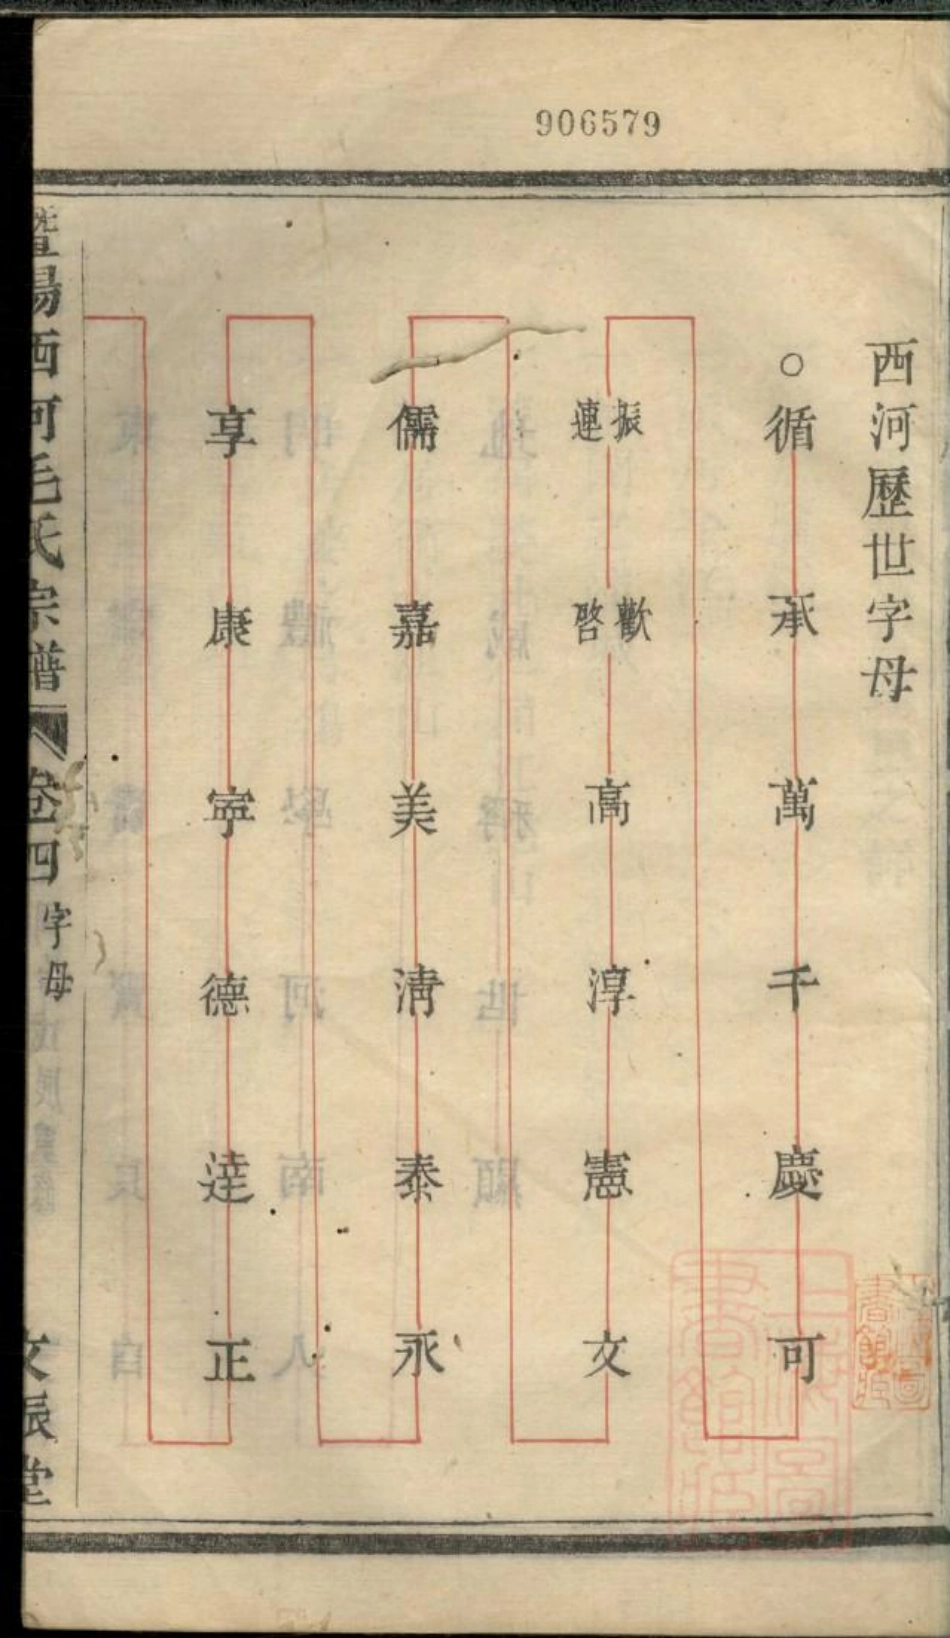 906579
西河歷世字母
○循承萬千慶可
振連 歡啓 高淳憲文
儒嘉美淸泰永
享康寧德達正
暨陽西河毛氏宗譜 卷四 字母 文辰堂